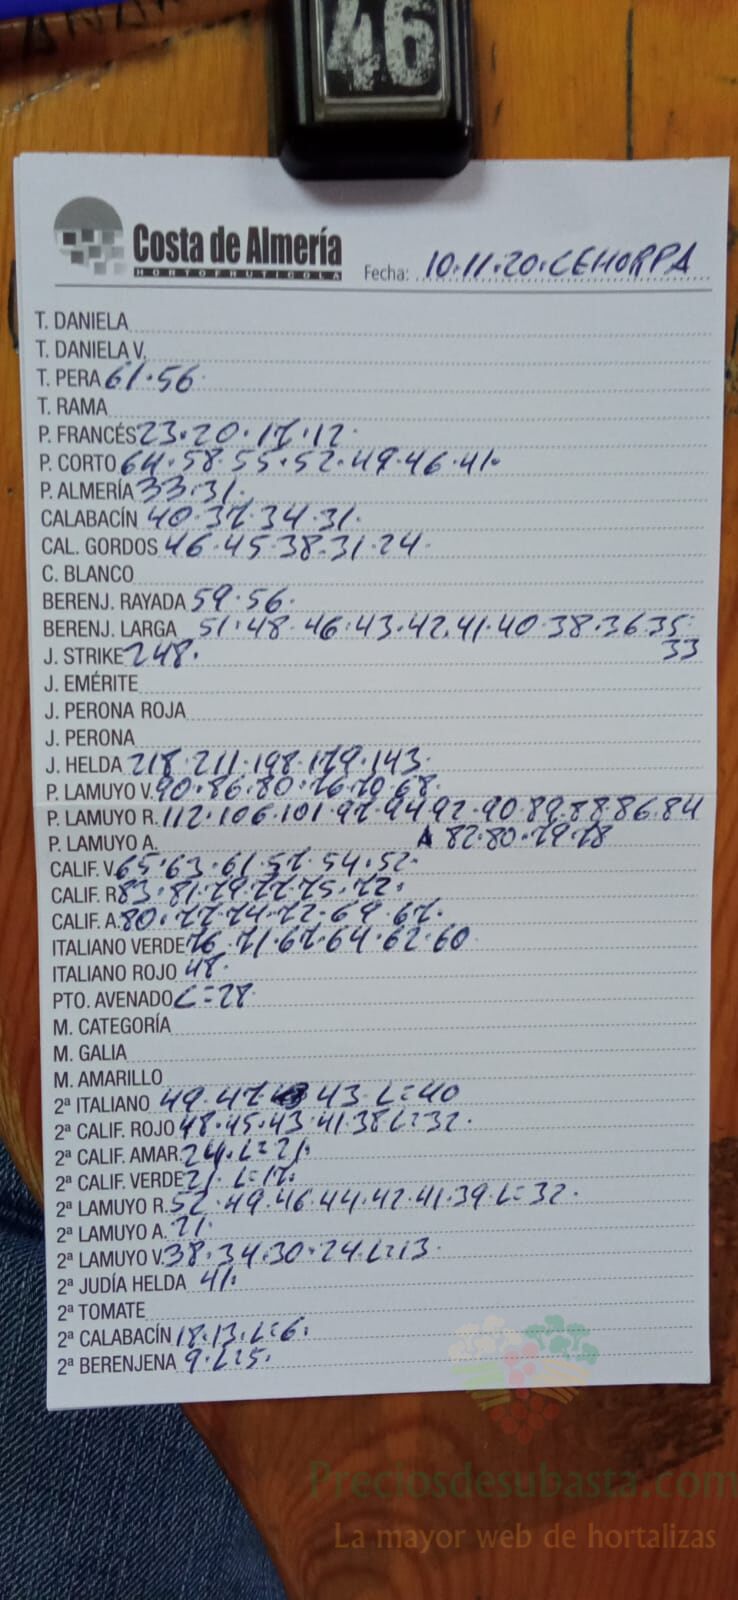 46
Costa de Almería
HORTOFRUTICOLA
Fecha: 10.11.20.CEHORPA
T. DANIELA
T. DANIELA V.
T. PERA 61.56
T. RAMA
P. FRANCÉS 23.20.17.12.
P. CORTO 64.58.55.52.49.46.41.
P. ALMERÍA 33.31.
CALABACÍN 40.37.34.31.
CAL. GORDOS 46.45.38.31.24.
C. BLANCO
BERENJ. RAYADA 59.56.
BERENJ. LARGA 51.48.46.43.42.41.40.38.36.35.
33
J. STRIKE 248.
J. EMÉRITE
J. PERONA ROJA
J. PERONA
J. HELDA 218.211.198.179.143.
P. LAMUYO V. 90.86.80.76.70.68.
P. LAMUYO R. 112.106.101.97.94.92.90.89.88.86.84
P. LAMUYO A. 82.80.79.78
CALIF. V. 65.63.61.57.54.52.
CALIF. R 83.81.79.77.75.72.
CALIF. A. 80.77.74.72.69.67.
ITALIANO VERDE 76.71.67.64.62.60
ITALIANO ROJO 48.
PTO. AVENADO L=28
M. CATEGORÍA
M. GALIA
M. AMARILLO
2ª ITALIANO 49.47. 43.L=40
2ª CALIF. ROJO 48.45.43.41.38L=32.
2ª CALIF. AMAR. 24.L=21.
2ª CALIF. VERDE 21. L=17.
2ª LAMUYO R. 52.49.46.44.42.41.39.L=32.
2ª LAMUYO A. 71.
2ª LAMUYO V. 38.34.30.24.L=13.
2ª JUDÍA HELDA 41.
2ª TOMATE
2ª CALABACÍN 18.13.L=6.
2ª BERENJENA 9.L=5.
Preciosdesubasta.com
La mayor web de hortalizas